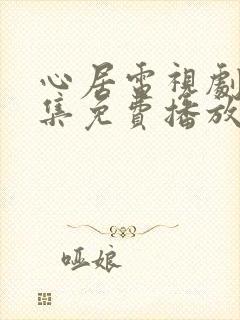 心居雷視劇
集免費播放
哑娘